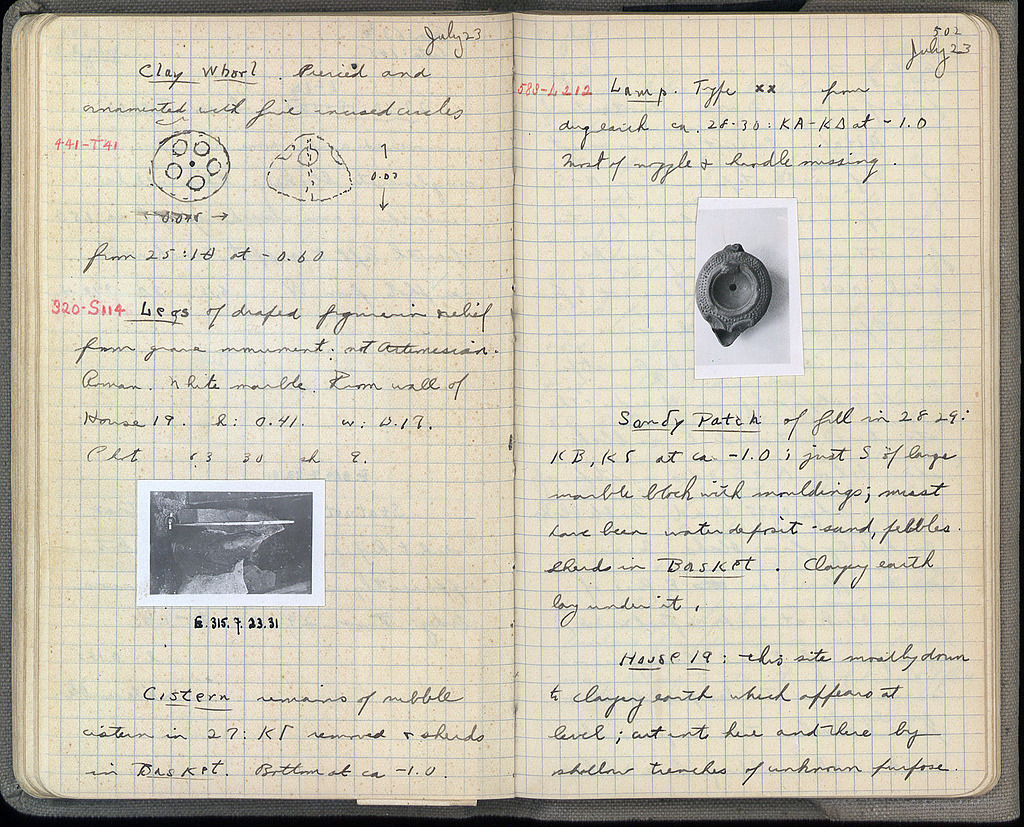 July 23
Clay Whorl. Pierced and
ornamented with five incised circles
441-T41
0.03
0.045
from 25:ΙΘ at -0.60
920-S114 Legs of draped figure in relief
from grave monument: not Artemisian.
Roman. White marble. From wall of
House 19. h: 0.41. w: 0.17.
63 30 sh 9.
E. 315. 7. 23. 31
Cistern remains of rubble
cistern in 27: ΚΓ removed + sherds
in Basket. Bottom at ca -1.0.
502
July 23
583-L212 Lamp. Type xx from
dug earth ca. 28-30: ΚΑ-ΚΔ at -1.0
Most of nozzle + handle missing.
Sandy Patch of fill in 28 29:
ΚΒ, ΚΓ at ca -1.0; just S of large
marble block with mouldings; must
have been water deposit - sand, pebbles
sherds in Basket. Clayey earth
lay under it.
House 19: this site mostly down
to clayey earth which appears at
level; cut into here and there by
shallow trenches of unknown purpose.